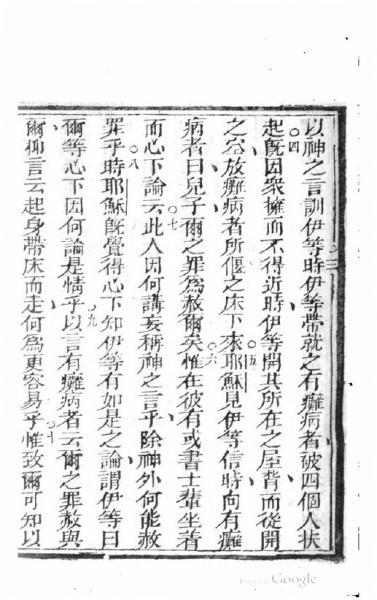 以神之言訓伊等時伊等帶就之有癱病者被四個人扶
起○四既因衆擁而不得近時伊等開其所在之屋背而從開
之窓放癱病者所偃之床下來○五耶穌見伊等信時向有癱
病者曰兒子爾之罪爲赦爾矣○六惟在彼有或書士輩坐着
而心下論云○七此人因何講妄稱神之言乎除神外何能赦
罪乎○八時耶穌既覺得心下知伊等有如是之論謂伊等曰
爾等心下因何論是情乎○九以言有癱病者云爾之罪赦與
爾抑言云起身帶床而走何爲更容易乎○十惟致爾可知以
Google